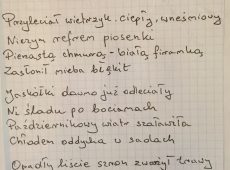 Przyleciał wietrzyk ciepły, wrześniowy
Niczym refren piosenki
Pierzastą chmurą - białą firanką
Zasłonił nieba błękit
Jaskółki dawno już odleciały
Ni śladu po bocianach
Październikowy wiatr szałowiła
Chłodem oddycha w sadach
Opadły liście szron zwarzył trawy